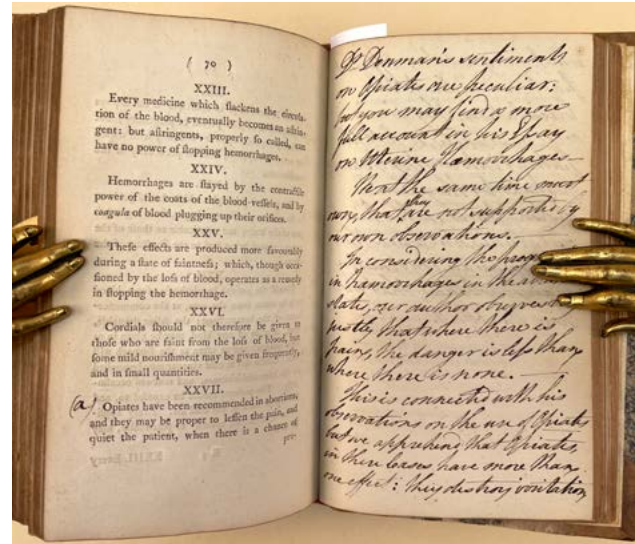 ( 70 )
XXIII.
Every medicine which slackens the circula-
tion of the blood, eventually becomes an astrin-
gent: but astringents, properly so called, can
have no power of stopping hemorrhages.
XXIV.
Hemorrhages are stayed by the contractile
power of the coats of the blood-vessels, and by
coagula of blood plugging up their orifices.
XXV.
These effects are produced more favourably
during a state of faintness; which, though occa-
sioned by the loss of blood, operates as a remedy
in stopping the hemorrhage.
XXVI.
Cordials should not therefore be given to
those who are faint from the loss of blood, but
some mild nourishment may be given frequently,
and in small quantities.
XXVII.
(a) Opiates have been recommended in abortions,
and they may be proper to lessen the pain, and
quiet the patient, when there is a chance of
pre-
Dr Denman's sentiments
on Opiates are peculiar:
but you may find a more
full account in his Essay
on Uterine Hæmorrhages—
at the same time must
own, that they are not supported by
our own observations.—
In considering the
in hæmorrhages in the
state, our author observes
justly, that where there is
pain, the danger is less than
where there is none.—
This is connected with his
observations on the use of Opiates
but we apprehend that Opiates,
in these cases have more than
one effect: they destroy irritation